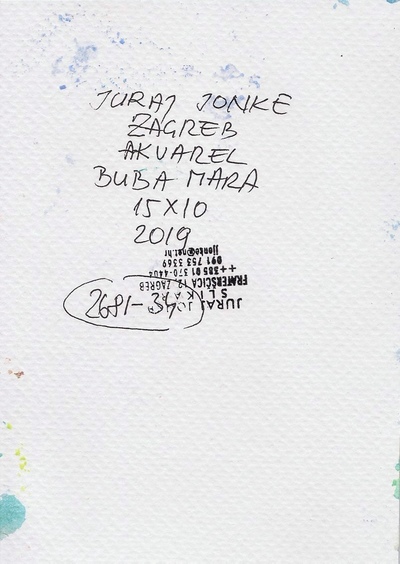 JURAJ JONKE
ZAGREB
AKVAREL
BUBA MARA
15X10
2019
2681-34
JURAJ JO
SLIKAR
FRATERŠČICA 12, ZAGREB
++385 01 370-4404
091 753 3369
jjonke@net.hr